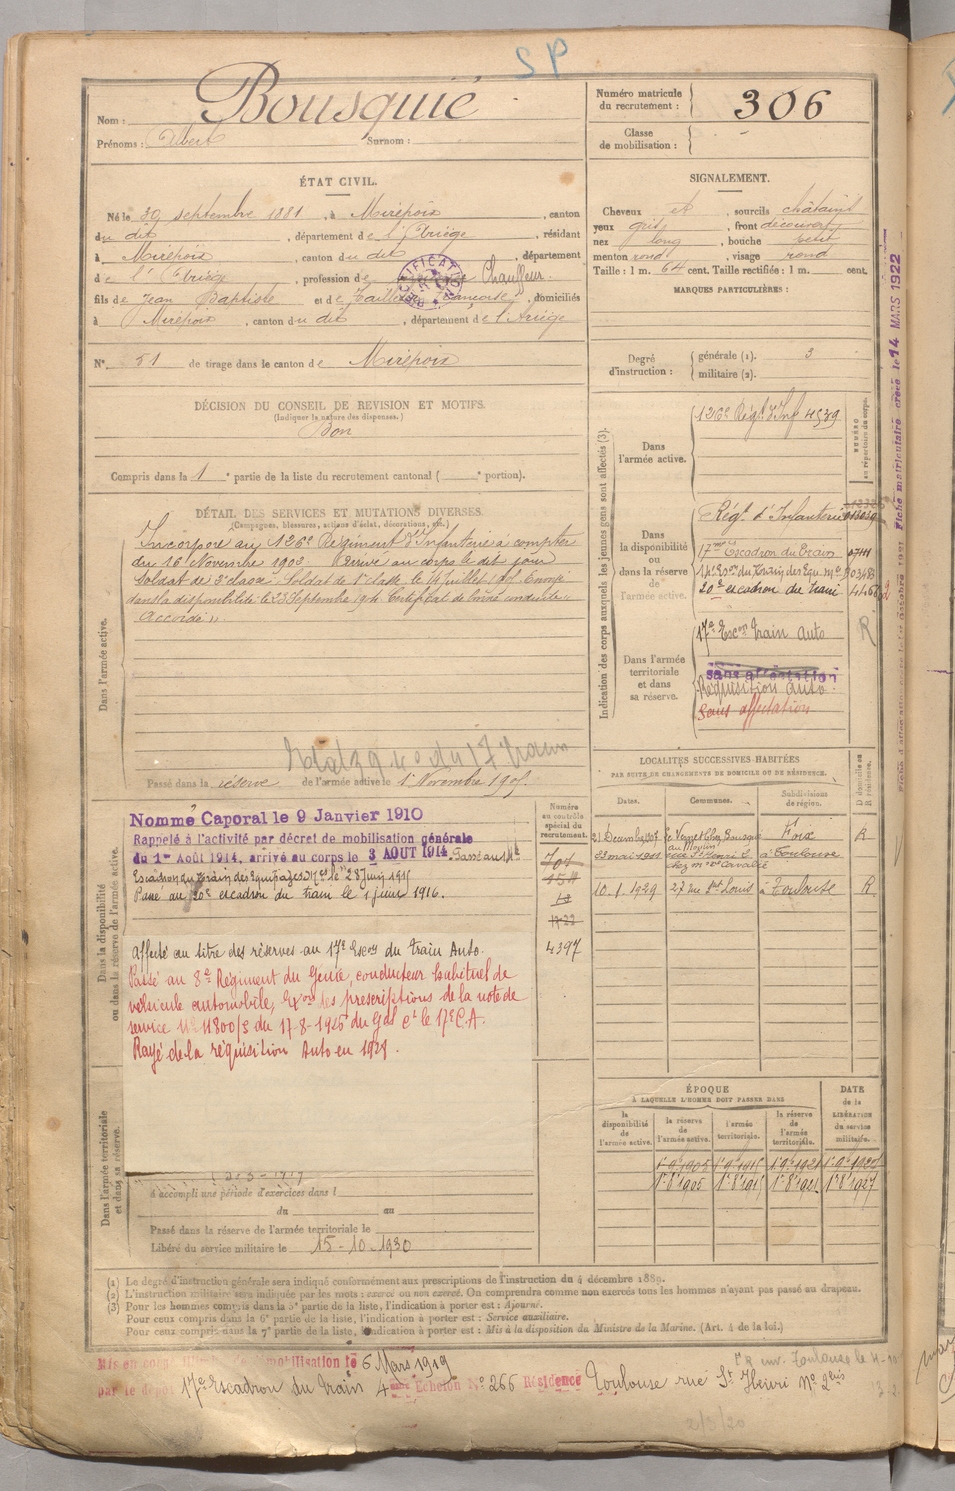 SP
Nom : Bousquié
Prénoms : Albert Surnom :
Numéro matricule du recrutement : 306
Classe de mobilisation :
ÉTAT CIVIL.
Né le 30 septembre 1881, à Mirepoix, canton
du dit, département de l'Ariège, résidant
à Mirepoix, canton du dit, département
de l'Ariège, profession de Chauffeur
fils de Jean Baptiste et de Françoise, domiciliés
à Mirepoix, canton du dit, département de l'Ariège
N° 51 de tirage dans le canton de Mirepoix
DÉCISION DU CONSEIL DE REVISION ET MOTIFS.
(Indiquer la nature des dispenses.)
Bon
Compris dans la 1e partie de la liste du recrutement cantonal ( e portion).
SIGNALEMENT.
Cheveux et, sourcils châtains
yeux gris, front découvert
nez long, bouche petit
menton rond, visage rond
Taille : 1 m. 64 cent. Taille rectifiée : 1 m. cent.
MARQUES PARTICULIÈRES :
Degré d'instruction : générale (1). 3
militaire (2).
DÉTAIL DES SERVICES ET MUTATIONS DIVERSES.
(Campagnes, blessures, actions d'éclat, décorations, etc.)
Dans l'armée active.
Incorporé au 126e Régiment d'Infanterie à compter
du 16 Novembre 1902. Arrivé au corps le dit jour
Soldat de 2e classe. Soldat de 1e classe le 14 Juillet Envoyé
dans la disponibilité le 23 Septembre 1904. Certificat de bonne conduite "
Accordé ".
du 17 train
Passé dans la réserve de l'armée active le 1er Novembre 1905
Indication des corps auxquels les jeunes gens sont affectés (3).
NUMÉRO au répertoire du corps.
Dans l'armée active.
126e Régt d'Inf 4539
Dans la disponibilité ou dans la réserve de l'armée active.
Régt d'Infanterie
17me Escadron du Train
20e escadron du train
Dans l'armée territoriale et dans sa réserve.
17e Escon Train Auto R
sans affectation
Réquisition auto.
Sans affectation
Fiche matriculaire créée le 14 MARS 1922
Dans la disponibilité ou dans la réserve de l'armée active.
Nommé Caporal le 9 Janvier 1910
Rappelé à l'activité par décret de mobilisation générale
du 1er Août 1914, arrivé au corps le 3 AOUT 1914. Passé au 14e
Escadron du Train des Equipages le 28 juin 1915
Passé au 20e escadron du train le 1 juin 1916.
Affecté au titre des réserves au 17e Escon du Train Auto.
Passé au 8e Régiment du Génie, conducteur habituel de
véhicule automobile, Exon des prescriptions de la note de
service N° 11800/S du 17-8-1925 du Gal Ct le 17e C.A.
Rayé de la réquisition Auto en 1928.
Numéro au contrôle spécial du recrutement.
4397
LOCALITÉS SUCCESSIVES HABITÉES
PAR SUITE DE CHANGEMENTS DE DOMICILE OU DE RÉSIDENCE.
Dates. Communes. Subdivisions de région. D domicile ou R résidence.
21 Décembre 1907 le Vernet Chez Bousquié au Moulin Foix R
23 mai 1911 rue St Henri 2 chez Mme Cavalié à Toulouse
10.1.1929 27 rue St Louis à Toulouse R
ÉPOQUE
A LAQUELLE L'HOMME DOIT PASSER DANS
la disponibilité de l'armée active. la réserve de l'armée active. l'armée territoriale. la réserve de l'armée territoriale. DATE de la LIBÉRATION du service militaire.
1er 9bre 1905 1er 9bre 1915 1er 9bre 1921
Dans l'armée territoriale et dans sa réserve.
A accompli une période d'exercices dans l
du au
Passé dans la réserve de l'armée territoriale le
Libéré du service militaire le 15-10-1930
(1) Le degré d'instruction générale sera indiqué conformément aux prescriptions de l'instruction du 4 décembre 1889.
(2) L'instruction militaire sera indiquée par les mots : exercé ou non exercé. On comprendra comme non exercés tous les hommes n'ayant pas passé au drapeau.
(3) Pour les hommes compris dans la 5e partie de la liste, l'indication à porter est : Ajourné.
Pour ceux compris dans la 6e partie de la liste, l'indication à porter est : Service auxiliaire.
Pour ceux compris dans la 7e partie de la liste, l'indication à porter est : Mis à la disposition du Ministre de la Marine. (Art. 4 de la loi.)
Mis en congé illimité de démobilisation le 6 Mars 1919
par le dépôt 17e Escadron du Train 4ème Echelon N° 266 Résidence Toulouse rue St Henri N° 2bis